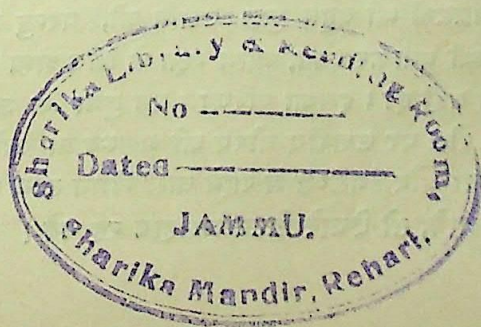 Sharika Library & Reading Room,
No ----------
Dated ----------
JAMMU.
Sharika Mandir, Rehari.